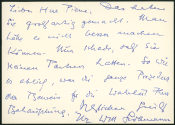 Lieber Herr Piene, Das haben
Sie großartig gemacht. Man
hätte es nicht besser machen
können. Nur schade, daß Sie
keinen Partner hatten. So wie
es ablief, war die ganze
der Beweis für die Wahrheit Ihrer
Behauptung. Herzlichen Gruß
Ihr Will